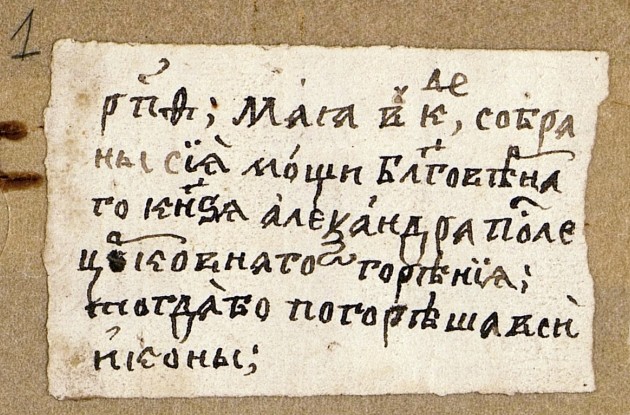 1
рп҃ѳ; Маіа в к҃ де, собра
ны сїѧ̀ мо́щи бл҃говѣрна
го кн҃ѕѧ алеѯа́ндра по́сле
цр҃ковнаго згорѣнїѧ;
тогда̀ бо погорѣша всѝ
и҆коны;